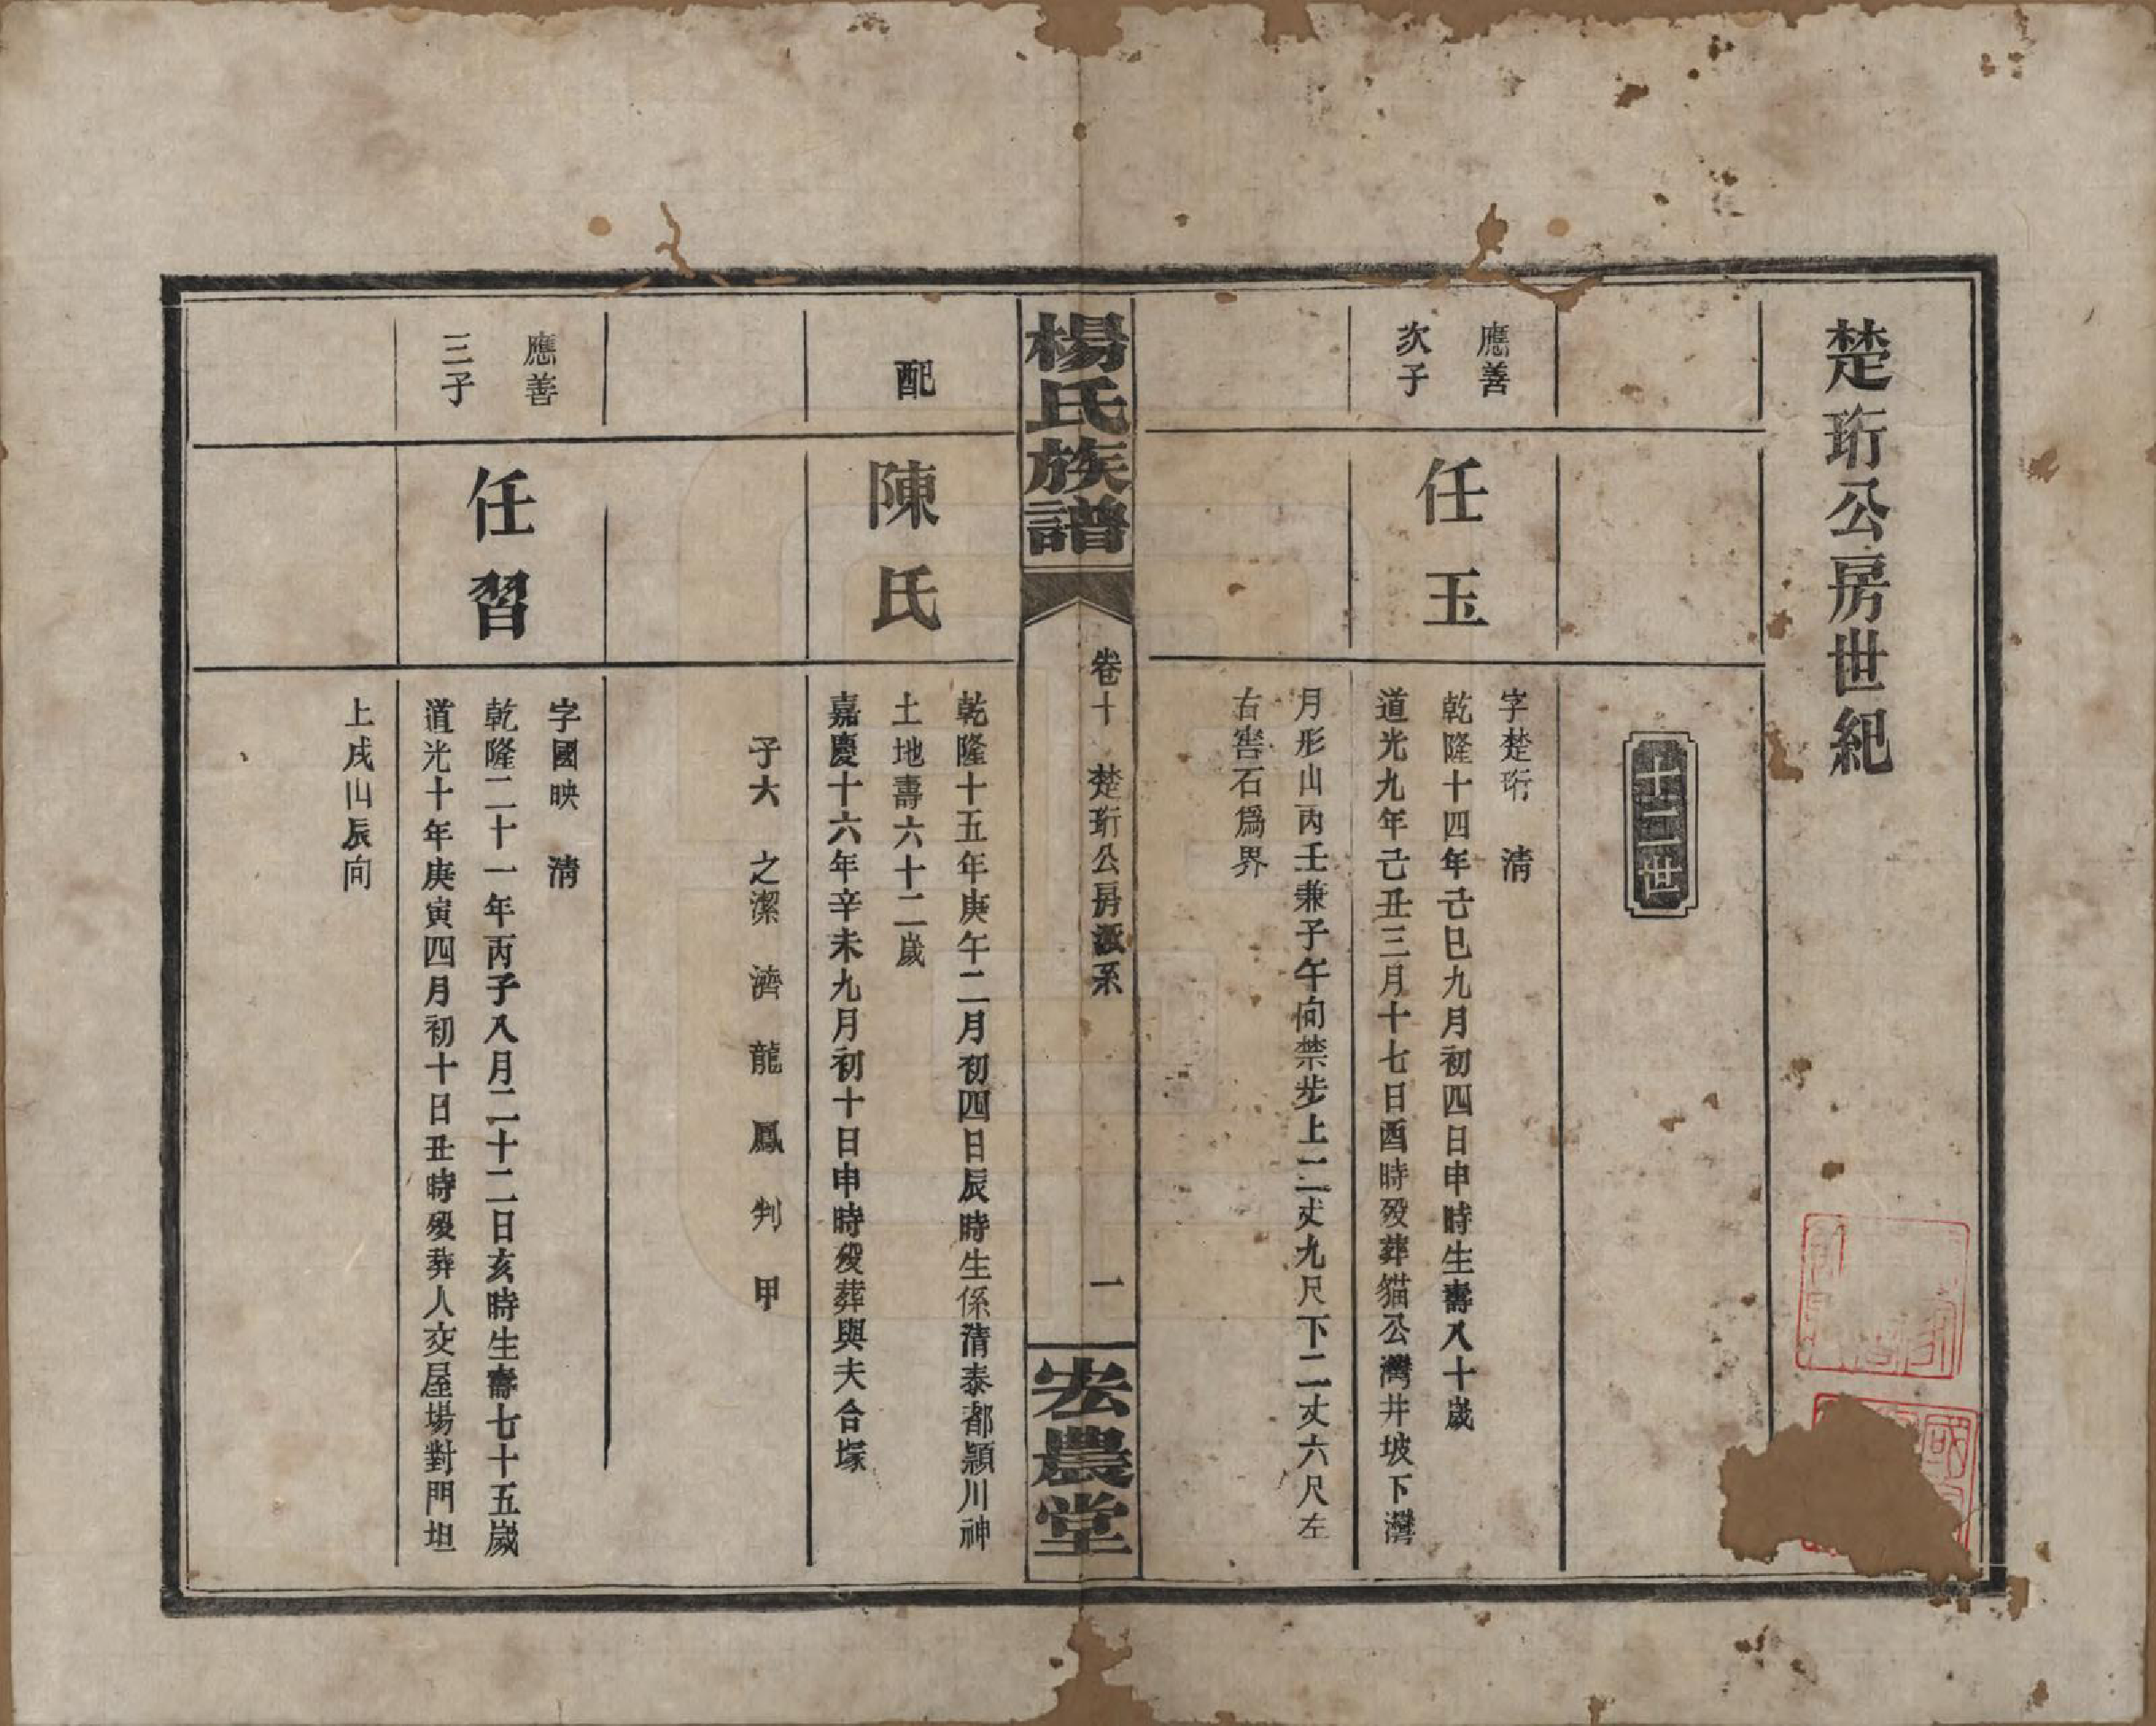 楚珩公房世紀
十二世
應善
次子
任玉
字楚珩　清
乾隆十四年己巳九月初四日申時生壽八十歲
道光九年己丑三月十七日酉時歿葬貓公灣井坡下灣
月形山丙壬兼子午向禁步上二丈九尺下二丈六尺左
右窖石爲界
楊氏族譜
卷十　楚珩公房派系　一
宏農堂
配
陳氏
乾隆十五年庚午二月初四日辰時生係清泰都潁川神
土地壽六十二歲
嘉慶十六年辛未九月初十日申時歿葬與夫合塚
子六　之潔　濟　龍　鳳　判　甲
應善
三子
任習
字國映　清
乾隆二十一年丙子八月二十二日亥時生壽七十五歲
道光十年庚寅四月初十日丑時歿葬人交屋場對門坦
上戌山辰向